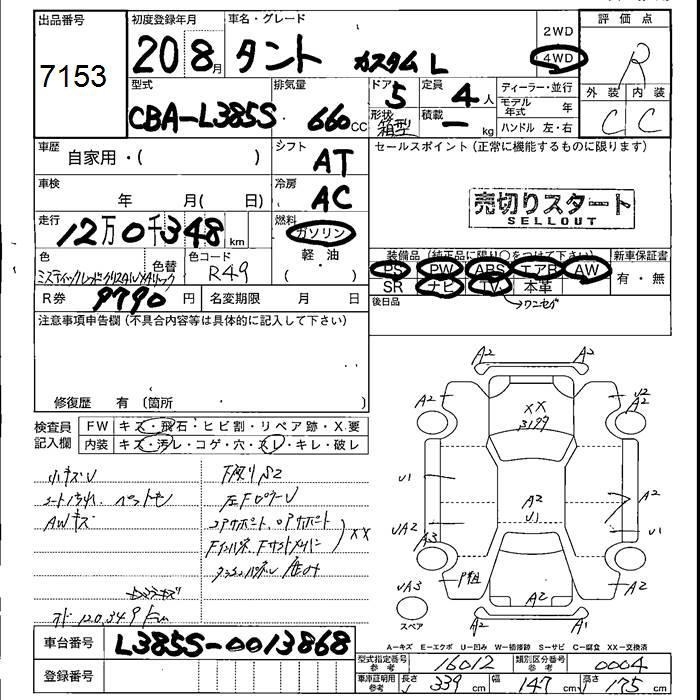 出品番号
7153
初度登録年月
20 8月
車名・グレード
タント カスタム L
2WD
4WD
評価点
R
外装 内装
C C
型式
CBA-L385S
排気量
660cc
ドア
5
形状
箱型
定員
4人
積載
ー kg
ディーラー・並行
モデル年式 年
ハンドル 左・右
車歴
自家用・( )
シフト
AT
セールスポイント(正常に機能するものに限ります)
売切りスタート
SELLOUT
車検
年 月( 日)
冷房
AC
走行
12万0千348km
燃料
ガソリン
軽・油
( )
色
ミスティックレッドクリスタルメタリック
色替
色コード
R49
装備品(純正品に限り〇をつけて下さい)
PS PW ABS エアB AW
SR ナビ TV 本革
→ワンセグ
後日品
新車保証書
有・無
R券 9790円
名変期限 月 日
注意事項申告欄(不具合内容等は具体的に記入して下さい)
修復歴 有(箇所 )
検査員記入欄
FW キズ・飛石・ヒビ割・リペア跡・X.要
内装 キズ・汚レ・コゲ・穴・スレ・キレ・破レ
小キズU
AWキズ
下廻りS2
XX
車台番号
L385S-0013868
登録番号
A2 A2
A2
XX
3199
U2
A2
U1
A2
U1
A2
UA2
A3
U1
UA3
A2
A2 A1
スペア
A-キズ E-エクボ U-凹み W-補修跡 S-サビ C-腐食 XX-交換済
型式指定番号 参考
16012
類別区分番号 参考
0004
車庫証明用 参考
長さ 339cm 幅 147cm 高さ 175cm